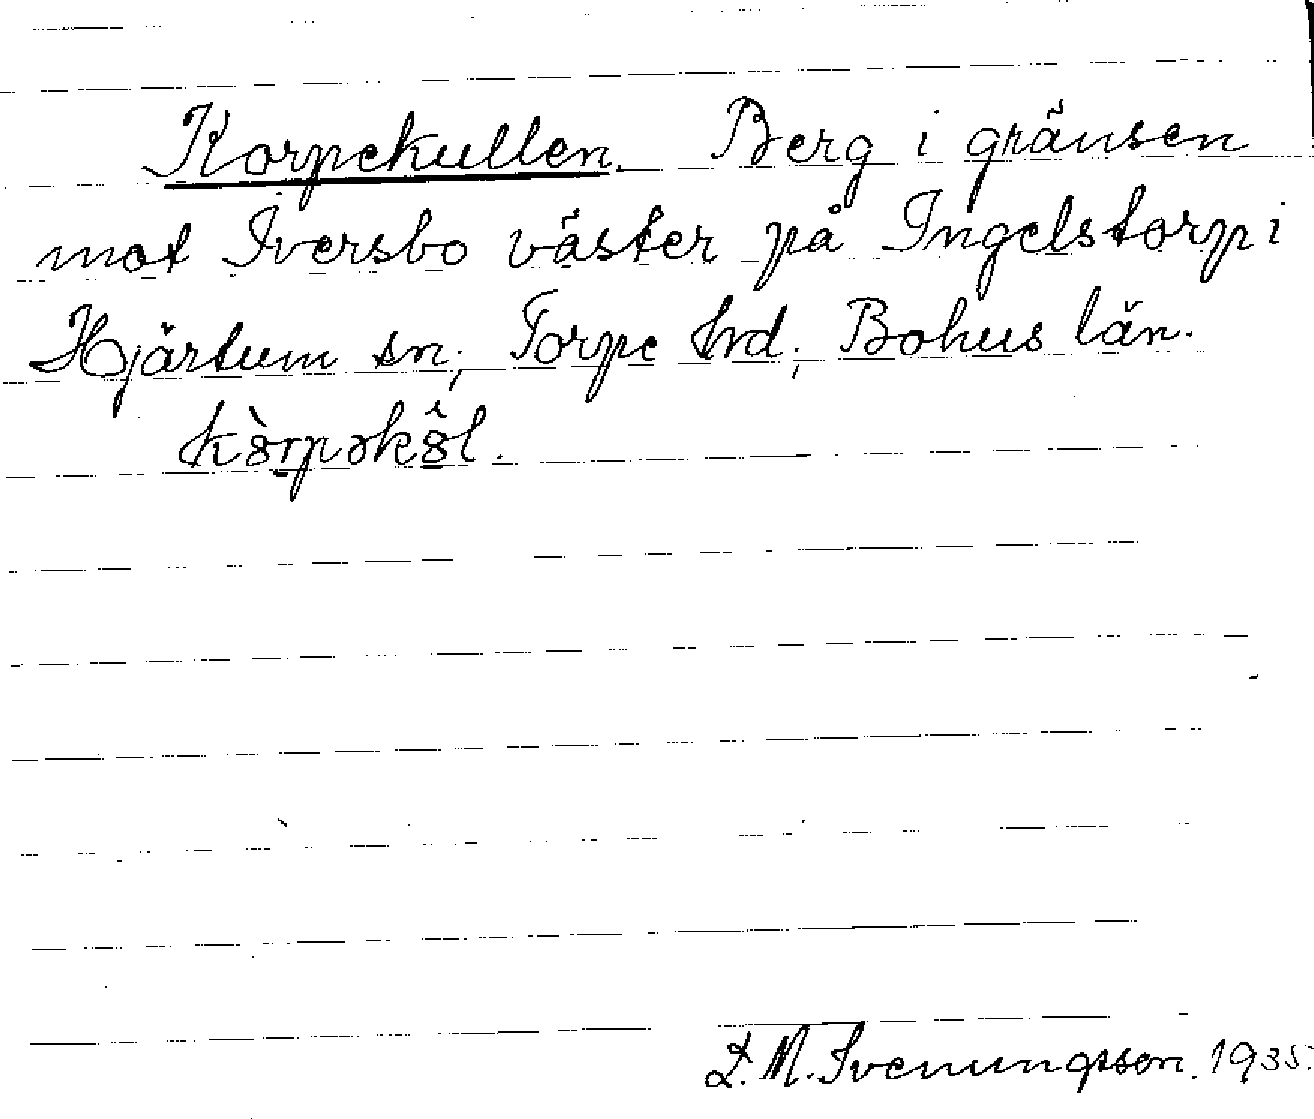 Korpekullen. Berg i gränsen
mot Iversbo väster på Ingelstorp i
Hjärtum sn; Torpe hrd; Bohus län.
L. M. Svenungsson. 1935.